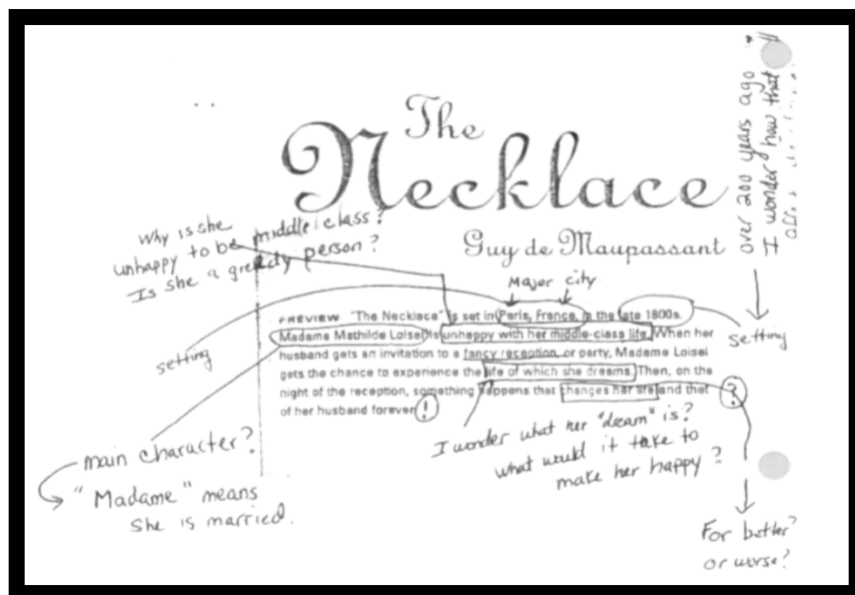 The
Necklace
Guy de Maupassant
over 200 years ago
I wonder how that
Why is she
unhappy to be middle class?
Is she a greedy person?
Major city
PREVIEW "The Necklace" is set in Paris, France, in the late 1800s.
Madame Mathilde Loisel is unhappy with her middle-class life. When her
husband gets an invitation to a fancy reception, or party, Madame Loisel
gets the chance to experience the life of which she dreams. Then, on the
night of the reception, something happens that changes her life and that
of her husband forever!
setting
setting
?
main character?
"Madame" means
she is married.
I wonder what her "dream" is?
what would it take to
make her happy?
For better?
or worse?